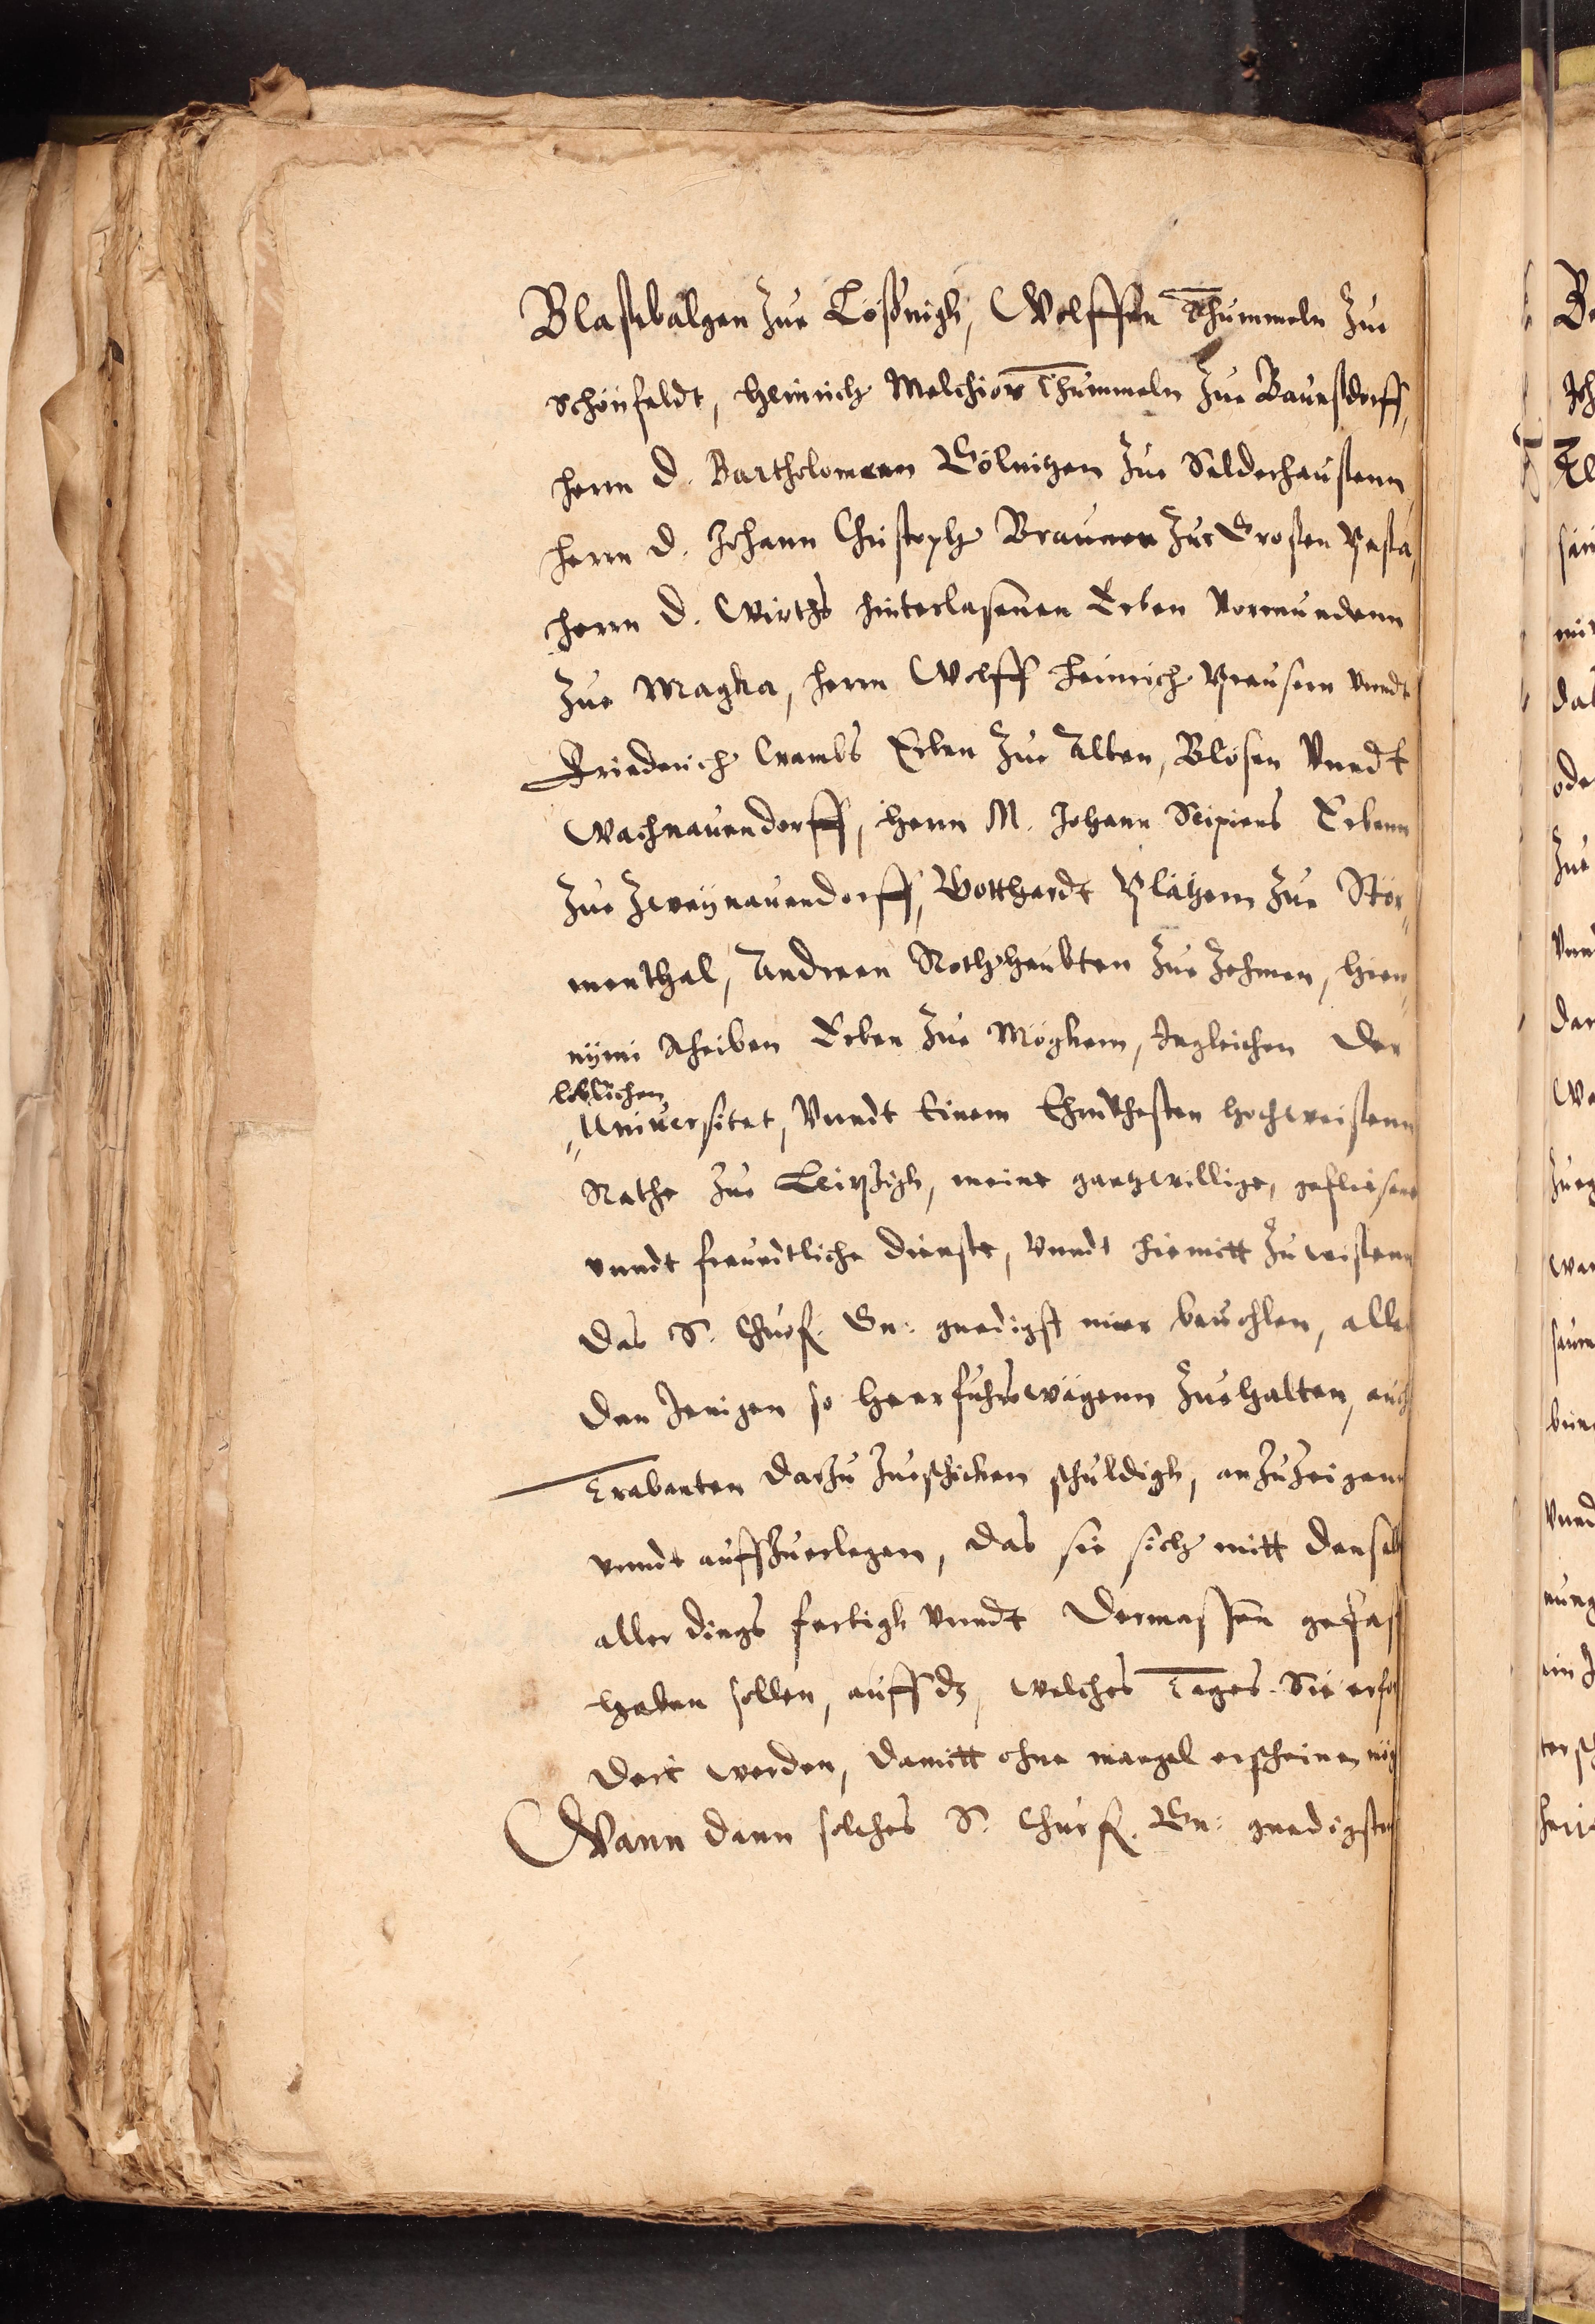 Blasebalgen Zue Lößnigk, Wolffen Thummeln Zue
Schönfeldt, Heinrich Melchior Thummeln Zue Baunsdorff,
Herrn D. Bartholomeen Gölnitzen Zue Selderhaussenn
Herrn D. Johann Christoph Braunen Zue Großen Pesta,
Herrn D. Wirths hinterlasenen Erben Vormundenn
Zue Magka, Herrn Wolff Heinrich Preusern vnndt
Friederich Crambs Erben Zue Alten, Blösen Vnndt
Wachnauendorff, Herrn M. Johann Scipions Erbenn
Zue Zweynauendorff, Gotthardt Plätzern Zue Stör-
menthal, Andreen Rothheubten Zue Zehmen, Hiero-
nymi Scheiben Erben Zue Mögkern, Ingleichen der
löblichen
Universitet, Vnndt Einem Ehrnvhesten Hochweissenn
Rathe Zue Leipzigk, meine gantzwillige, gefliesene
vnndt freundtliche dienste, Vnndt hiemitt Zu wissenn
das S. Churf. Gn: gnedigst mier beuohlen, alle
den Jenigen so Heerfuhrwägenn Zue halten, auch
Trabanten darzu Zueschicken schuldigk, an Zu Zeigenn
vnndt auffZuerlegen, das sie sich mitt densel
aller dings fertigk Vnndt dermassenn gefas
haben sollen, auff dz, welches Tages Sie erfo
dert werden, damitt ohne mangel erscheinen mög
Wann dann solches S. Churf. Gn: gnedigste